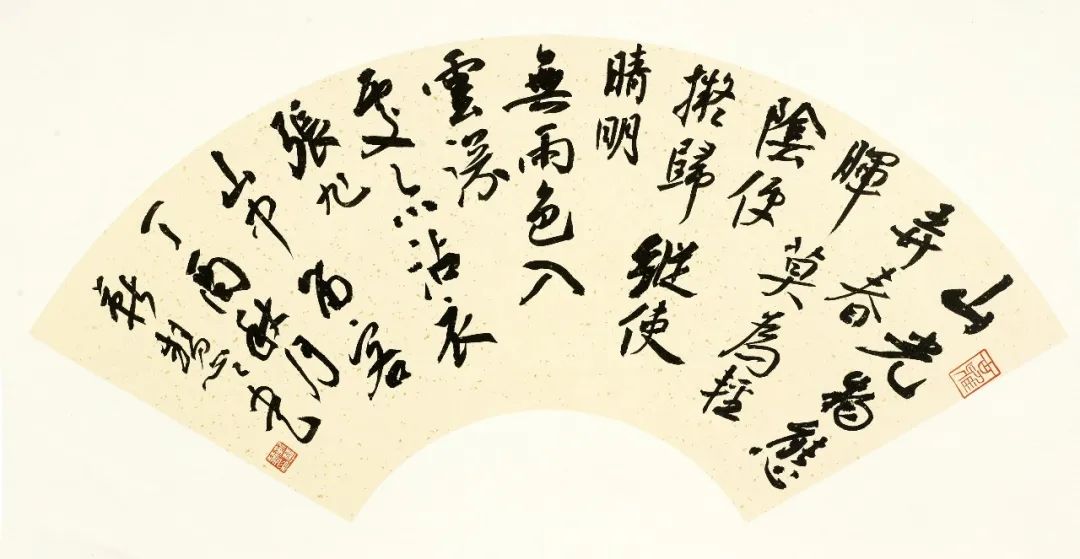 山光物態
弄春
暉莫為輕
陰便
擬歸縱使
晴明
無雨色入
雲深
處亦沾衣
張旭
山中留客
丁酉秋月